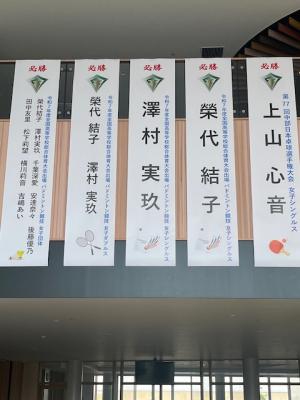 必勝
第77回中部日本卓球選手権大会 女子シングルス
上山 心音
必勝
令和7年度全国高等学校総合体育大会出場 バドミントン競技 女子シングルス
榮代 結子
必勝
令和7年度全国高等学校総合体育大会出場 バドミントン競技 女子シングルス
澤村 実玖
必勝
令和7年度全国高等学校総合体育大会出場 バドミントン競技 女子ダブルス
榮代 結子 澤村 実玖
必勝
令和7年度全国高等学校総合体育大会出場 バドミントン競技 女子団体
榮代結子 澤村実玖 千葉深愛 安達奈々 後藤優乃
田中友里 松下莉望 横川莉音 吉嶋あい